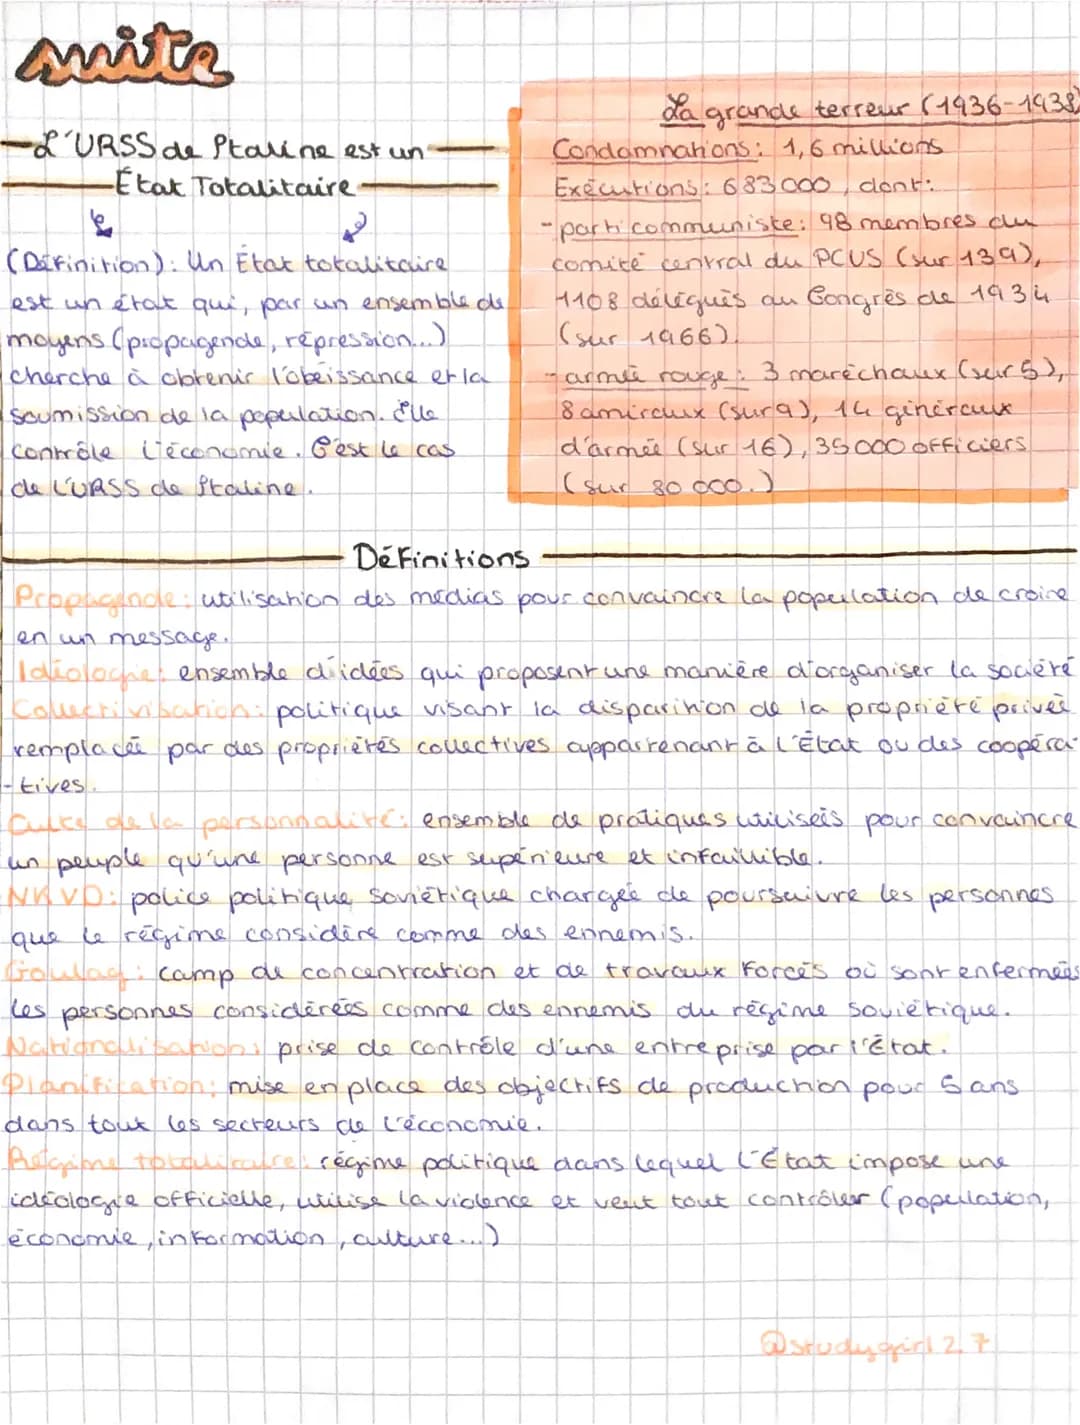 suite
L'URSS de Staline est un
État Totalitaire
(Définition): Un État totalitaire
est un état qui, par un ensemble de
moyens (propagende, répression...)
cherche à obtenir l'obéissance et la
soumission de la population. Elle
contrôle l'économie. C'est le cas
de l'URSS de Staline.
La grande terreur (1936-1938)
Condamnations: 1,6 millions
Exécutions: 683 000, dont:
- parti communiste: 98 membres du
comité central du PCUS (sur 139),
1108 délégués au Congrès de 1934
(sur 1966).
- armée rouge: 3 maréchaux (sur 5),
8 amiraux (sur 9), 14 généraux
d'armée (sur 16), 35 000 officiers
(sur 80 000.)
Définitions
Propagende: utilisation des médias pour convaincre la population de croire
en un message.
Idéologie: ensemble d'idées qui proposent une manière d'organiser la société
Collectivisation: politique visant la disparition de la propriété privée
remplacée par des propriétés collectives appartenant à l'État ou des coopéra-
-tives.
Culte de la personnalité: ensemble de pratiques utilisées pour convaincre
un peuple qu'une personne est supérieure et infaillible.
NKVD: police politique soviétique chargée de poursuivre les personnes
que le régime considère comme des ennemis.
Goulag: camp de concentration et de travaux forcés où sont enfermées
les personnes considérées comme des ennemis du régime soviétique.
Nationalisation: prise de contrôle d'une entreprise par l'État.
Planification: mise en place des objectifs de production pour 5 ans
dans tout les secteurs de l'économie.
Régime totalitaire: régime politique dans lequel l'État impose une
idéologie officielle, utilise la violence et veut tout contrôler (population,
économie, information, culture...)
@studygirl2.7